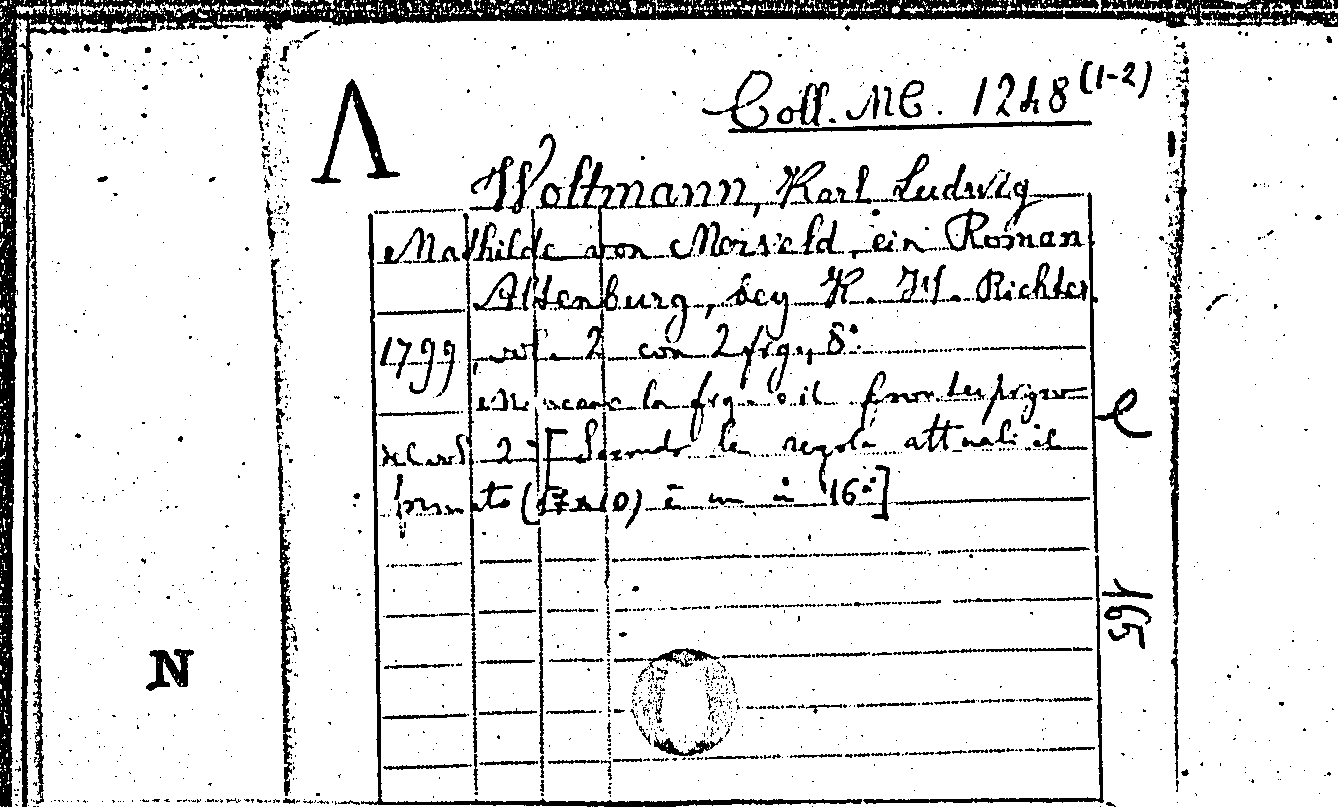 Λ
Coll. MC. 1248 (1-2)
Woltmann, Karl Ludwig
Mathilde von Merveld, ein Roman
Altenburg, bey K. H. Richter
1799, vol. 2 con 2 frg., 8°.
Mancano la frg. e il frontespizio
del vol 2° [Secondo le regole attuali il
formato (17x10) è un in 16°]
e
165
N